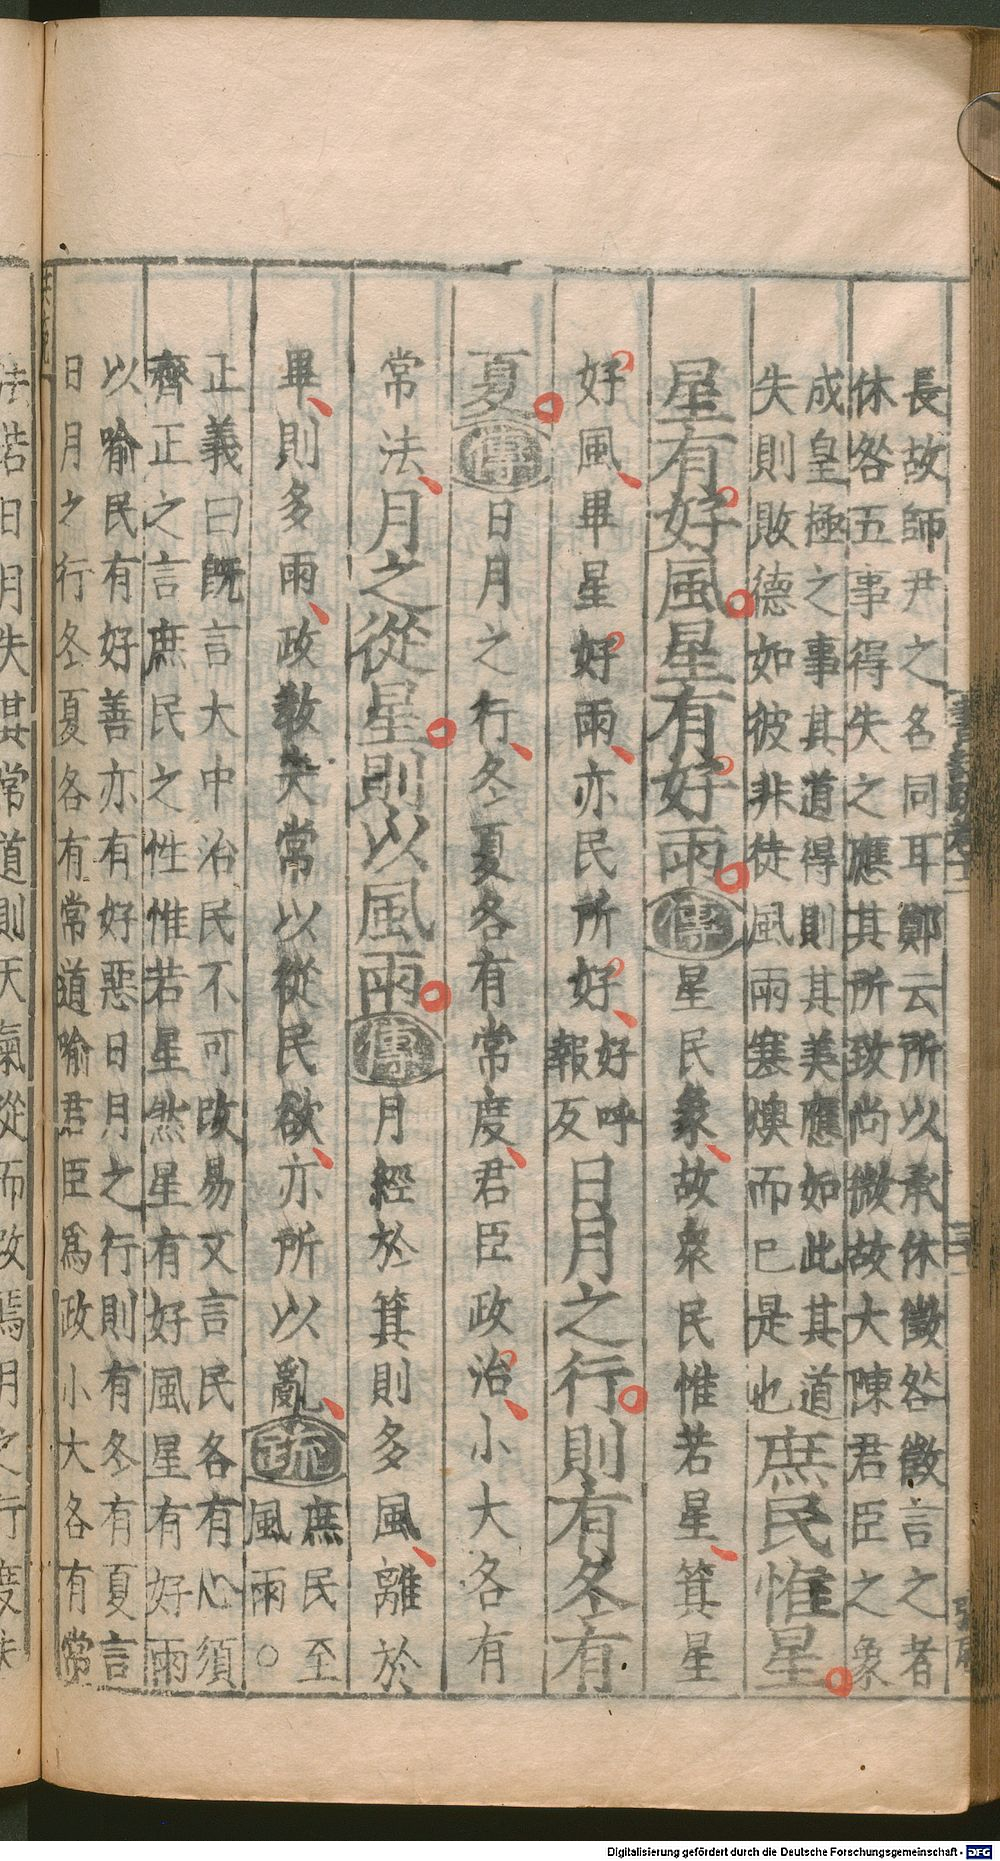 長故師尹之名同耳鄭云所以承休徵咎徵言之者
休咎五事得失之應其所致尚微故大陳君臣之象
成皇極之事其道得則其美應如此其道
失則敗德如彼非徒風雨寒燠而已是也庶民惟星
星有好風星有好雨傳星民象故衆民惟若星箕星
好風畢星好雨亦民所好好呼報反日月之行則有冬有
夏傳日月之行冬夏各有常度君臣政治小大各有
常法月之從星則以風雨傳月經於箕則多風離於
畢則多雨政教失常以從民欲亦所以亂疏庶民至風雨○
正義曰旣言大中治民不可改易又言民各有心須
齊正之言庶民之性惟若星然星有好風星有好雨
以喻民有好善亦有好惡日月之行則有冬有夏言
日月之行冬夏各有常道喻君臣爲政小大各有常
法若日月失其常道則天氣從而改焉月之行度失
Digitalisierung gefördert durch die Deutsche Forschungsgemeinschaft - DFG